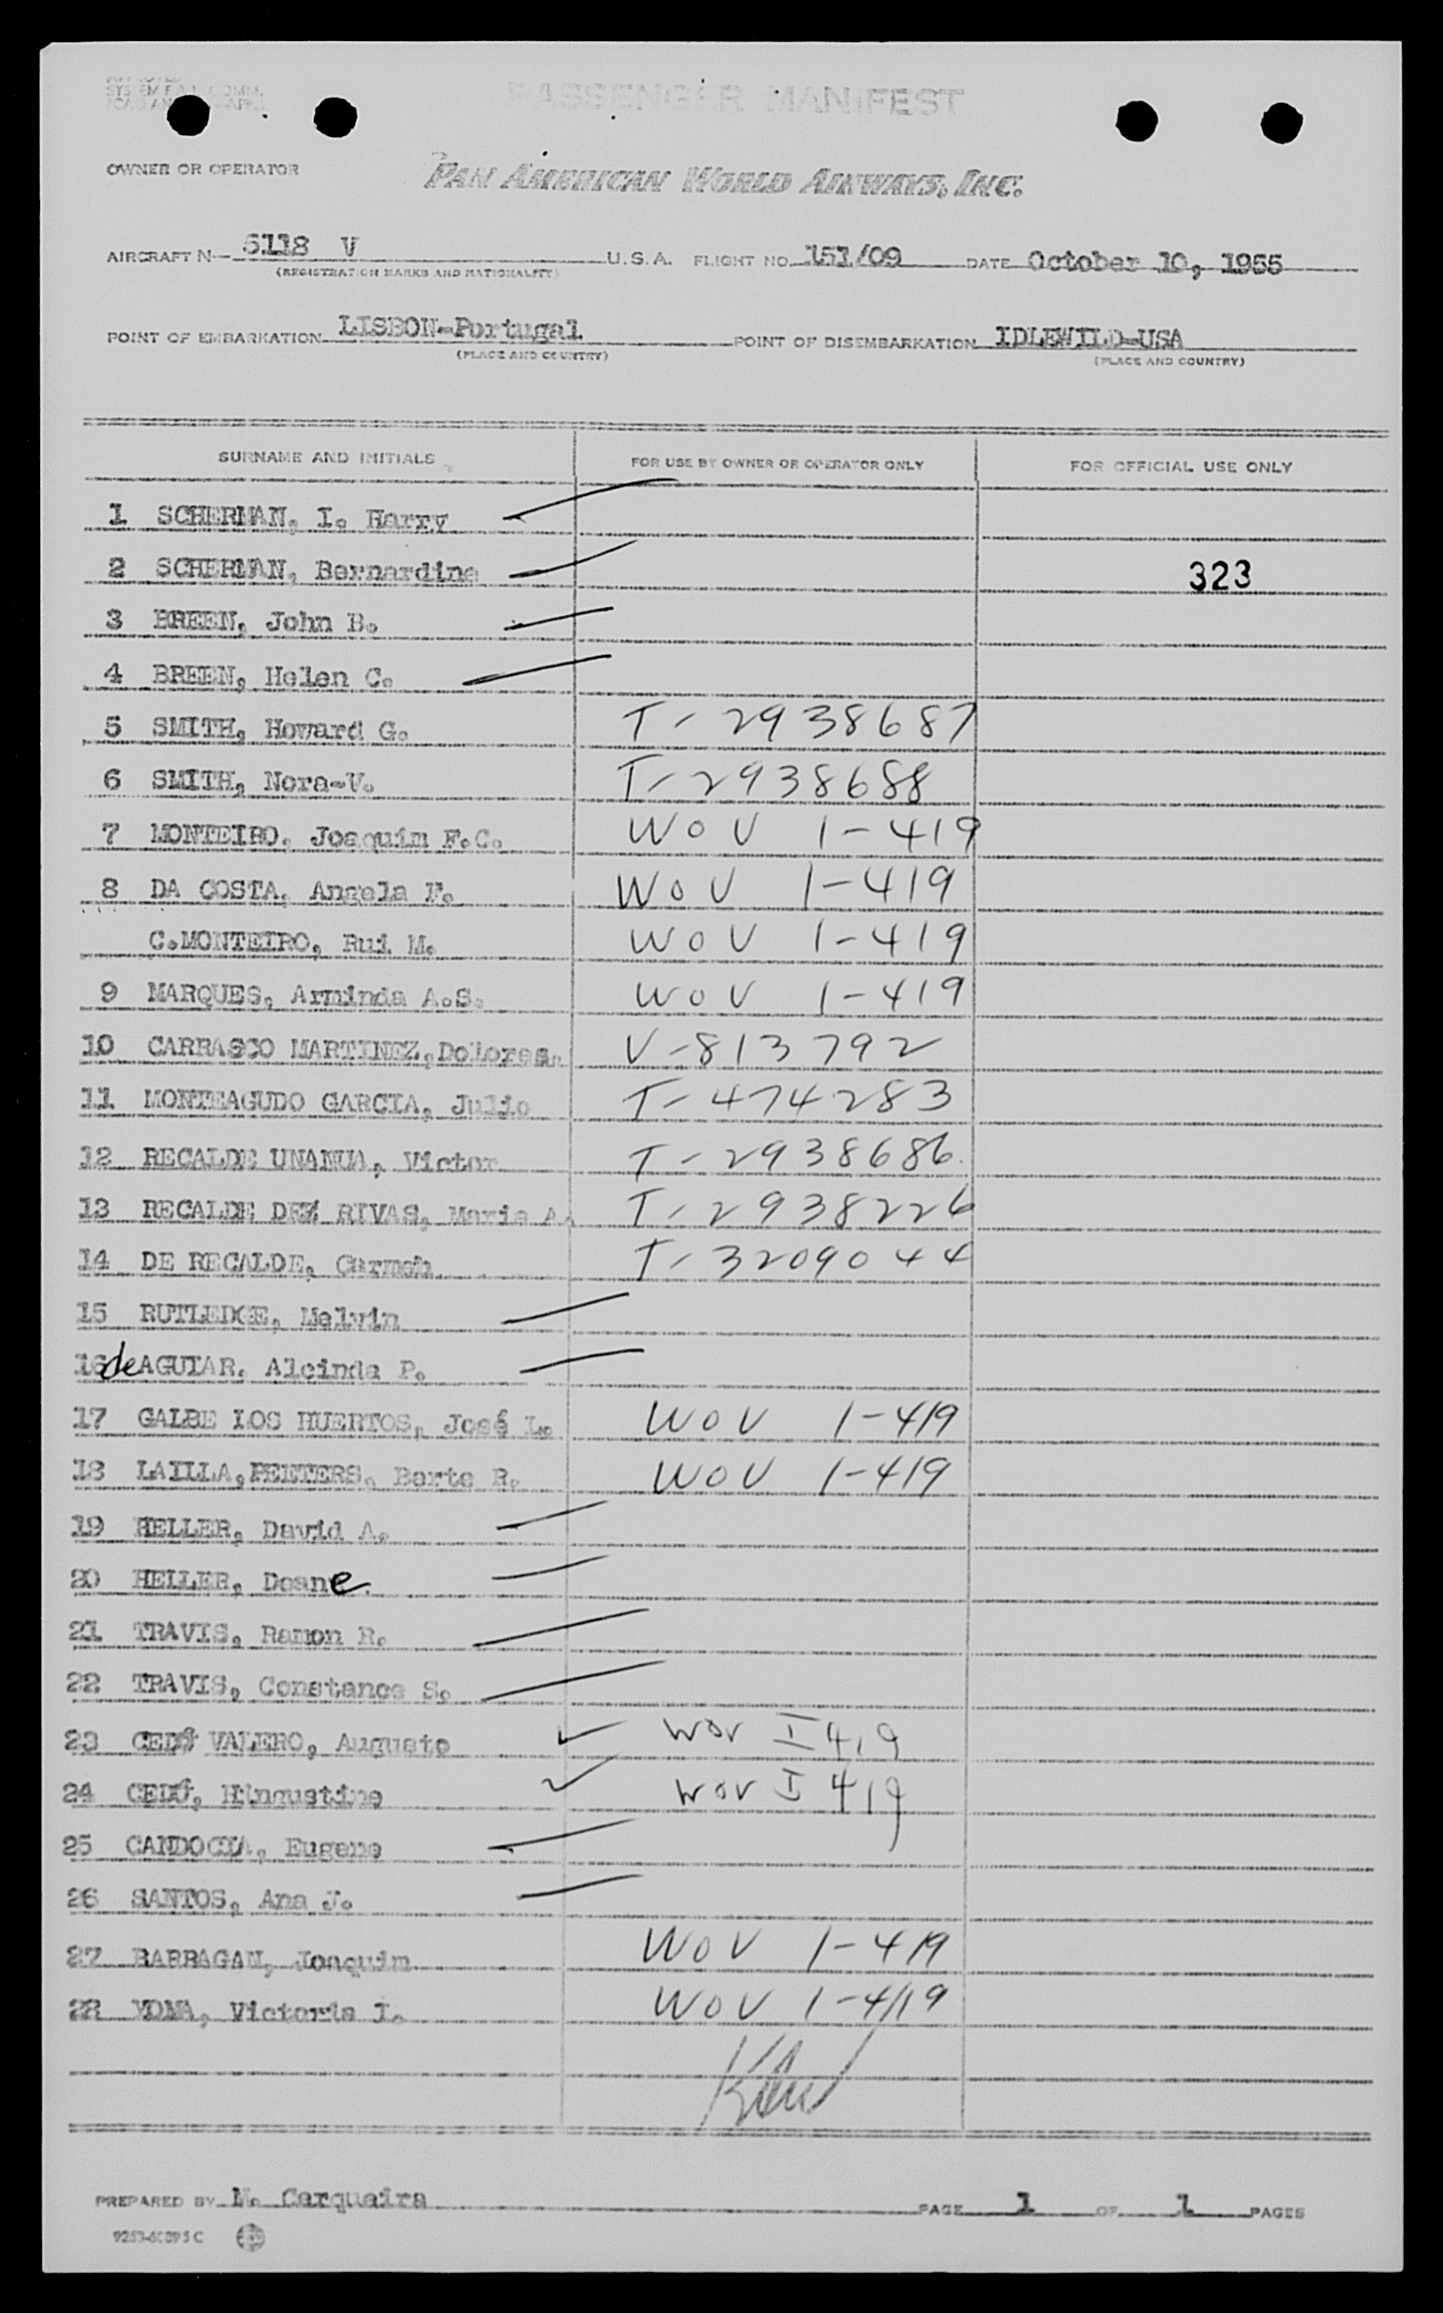 PASSENGER MANIFEST
OWNER OR OPERATOR PAN AMERICAN WORLD AIRWAYS, INC.
AIRCRAFT N— 6118 V U.S.A. FLIGHT NO. 151/09 DATE October 10, 1955
(REGISTRATION MARKS AND NATIONALITY)
POINT OF EMBARKATION LISBON-Portugal POINT OF DISEMBARKATION IDLEWILD-USA
(PLACE AND COUNTRY) (PLACE AND COUNTRY)
SURNAME AND INITIALS FOR USE BY OWNER OR OPERATOR ONLY FOR OFFICIAL USE ONLY
1 SCHERMAN, I. Harry
2 SCHERMAN, Bernardine 323
3 BREEN, John B.
4 BREEN, Helen C.
5 SMITH, Howard G. T-2938687
6 SMITH, Nora-V. T-2938688
7 MONTEIRO, Joaquim F.C. WOV 1-419
8 DA COSTA, Angela F. WOV 1-419
C.MONTEIRO, Rui M. WOV 1-419
9 MARQUES, Arminda A.S. WOV 1-419
10 CARRASCO MARTINEZ, Dolores. V-813792
11 MONTEAGUDO GARCIA, Julio T-474283
12 RECALDE UNANUA, Victor T-2938686
13 RECALDE DE RIVAS, Maria A. T-2938226
14 DE RECALDE, Carmen T-3209044
15 RUTLEDGE, Melvin
16 de AGUIAR, Alcinda P.
17 GALBE LOS HUERTOS, José L. WOV 1-419
18 LAILLA, PEETERS, Berte R. WOV 1-419
19 HELLER, David A.
20 HELLER, Doane.
21 TRAVIS, Ramon R.
22 TRAVIS, Constance S.
23 VALERO, Augusto WOV I 419
24 WOV I 419
25 Eugene
26 SANTOS, Ana J.
27 BARRAGAN, Joaquim WOV 1-419
28 Victoria I. WOV 1-419
PREPARED BY M. Cerqueira PAGE 1 OF 1 PAGES